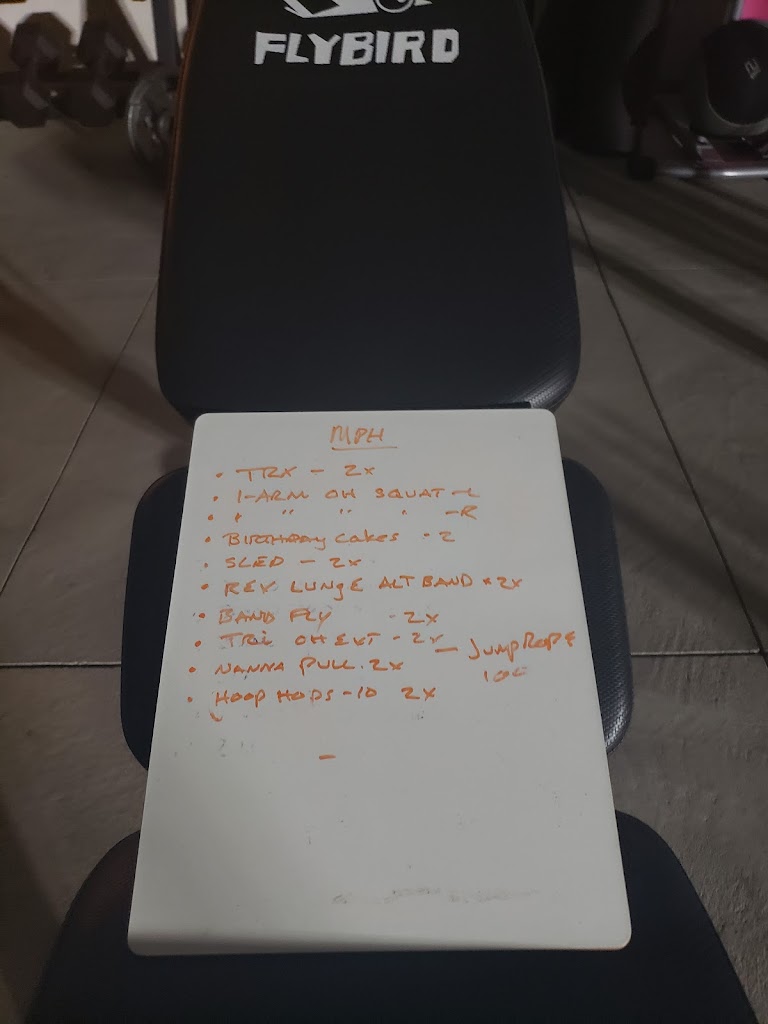 FLYBIRD
MPH
• TRX - 2x
• 1-ARM OH SQUAT - L
• " " " -R
• BIRTHDAY CAKES - 2
• SLED - 2x
• REV LUNGE ALT BAND * 2x
• BAND FLY - 2x
• TRI OH EXT - 2x - JUMP ROPE
• NANNA PULL. 2x 100
• HOOP HOPS - 10 2x